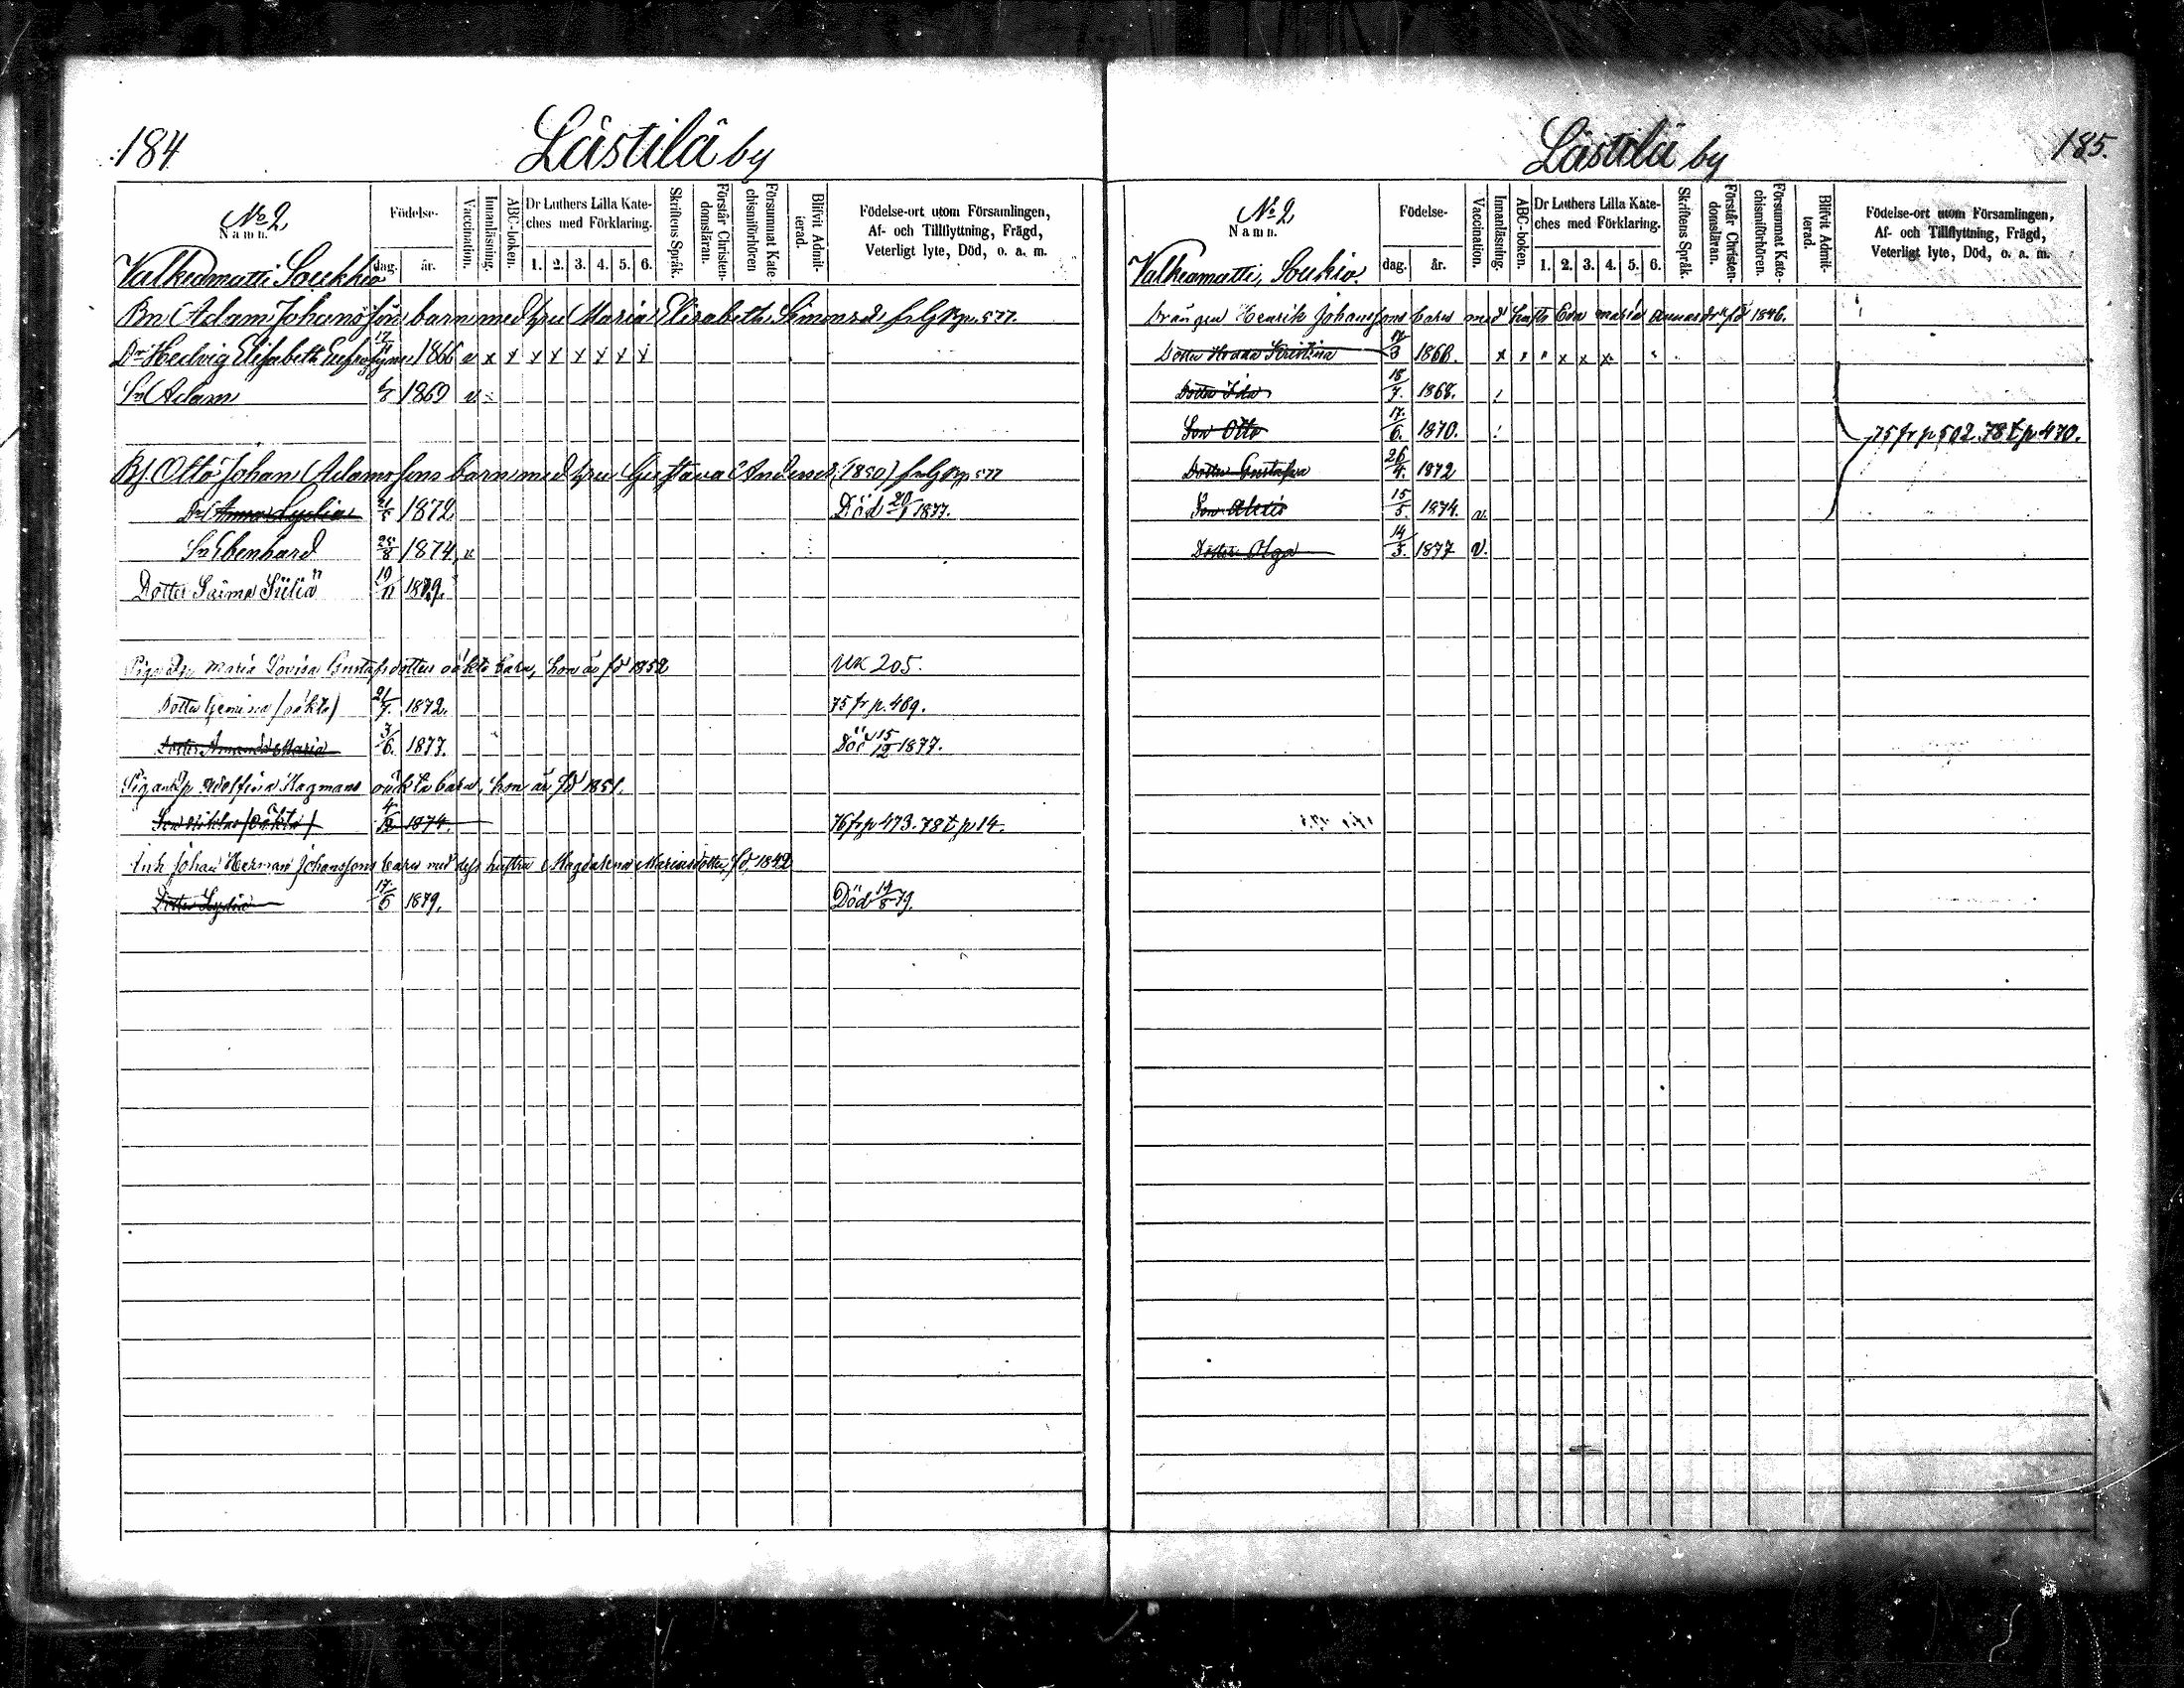 184
Lästilä by
No 2
Namn.
Födelse-
dag.
år.
Vaccination.
Innanläsning.
ABC-boken.
Dr Luthers Lilla Kate-
ches med Förklaring.
1. 2. 3. 4. 5. 6.
Skriftens Språk.
Förstår Christen-
domsläran.
Försummat Kate
chismiförhören
Blifvit Admit-
terad.
Födelse-ort utom Församlingen,
Af- och Tillflyttning, Frägd,
Veterligt lyte, Död, o. a. m.
Valkiamatti Soukkio
Bn Adam Johansson barn med hru Maria Elisabeth Simonsd. p. 577.
Dr Hedvig Elisabeth 17/11 1866 v x x x x x x x x
Sn Adam 1869 v
Bf. Otto Johan Adamssons barn med hru Gustava Andersd. (1850) p. 577
Dr Anna Lydia 1872 Död 20/1 1877.
Sn Ebenhard 25/8 1874 v
Dotter Saima Siliä 19/11 1879.
Maria Lovisa Gustafsdotters oäkta barn, hon är fd 1852 UK 205.
Dotter Gemina (oäkta) 21/7. 1872. 75 fr p. 469.
Dotter Amanda Maria 3/6. 1877. Död 15/12 1877.
Pigan Adolfina Hagmans oäkta barn, hon är fd 1851.
Son (oäkta) 4/12 1874. 76 fr p 473. 78 t p 14.
Inh Johan Herman Johanssons barn med dess hustru Magdalena Mariasdotter, fd, 1842
Dotter Lydia 17/6 1879. Död 14/8 79.
185.
Lästilä by
No 2
Namn.
Födelse-
dag.
år.
Vaccination.
Innanläsning.
ABC-boken.
Dr Luthers Lilla Kate-
ches med Förklaring.
1. 2. 3. 4. 5. 6.
Skriftens Språk.
Förstår Christen-
domsläran.
Försummat Kate-
chismiförhören.
Blifvit Admit-
terad.
Födelse-ort utom Församlingen,
Af- och Tillflyttning, Frägd,
Veterligt lyte, Död, o. a. m.
Valkiamatti, Soukio.
Drängen Henrik Johanssons barn med hustr Eva Maria fd 1846.
Dotter Kristina 1866. x x x x
Dotter Ida 18/7. 1868.
Son Otto 17/6. 1870. 75 fr p 502. 78 t p 470.
Dotter Gustafva 26/4. 1872
Son Alexis 15/5. 1874. v.
Dotter Olga 14/3. 1877 v.